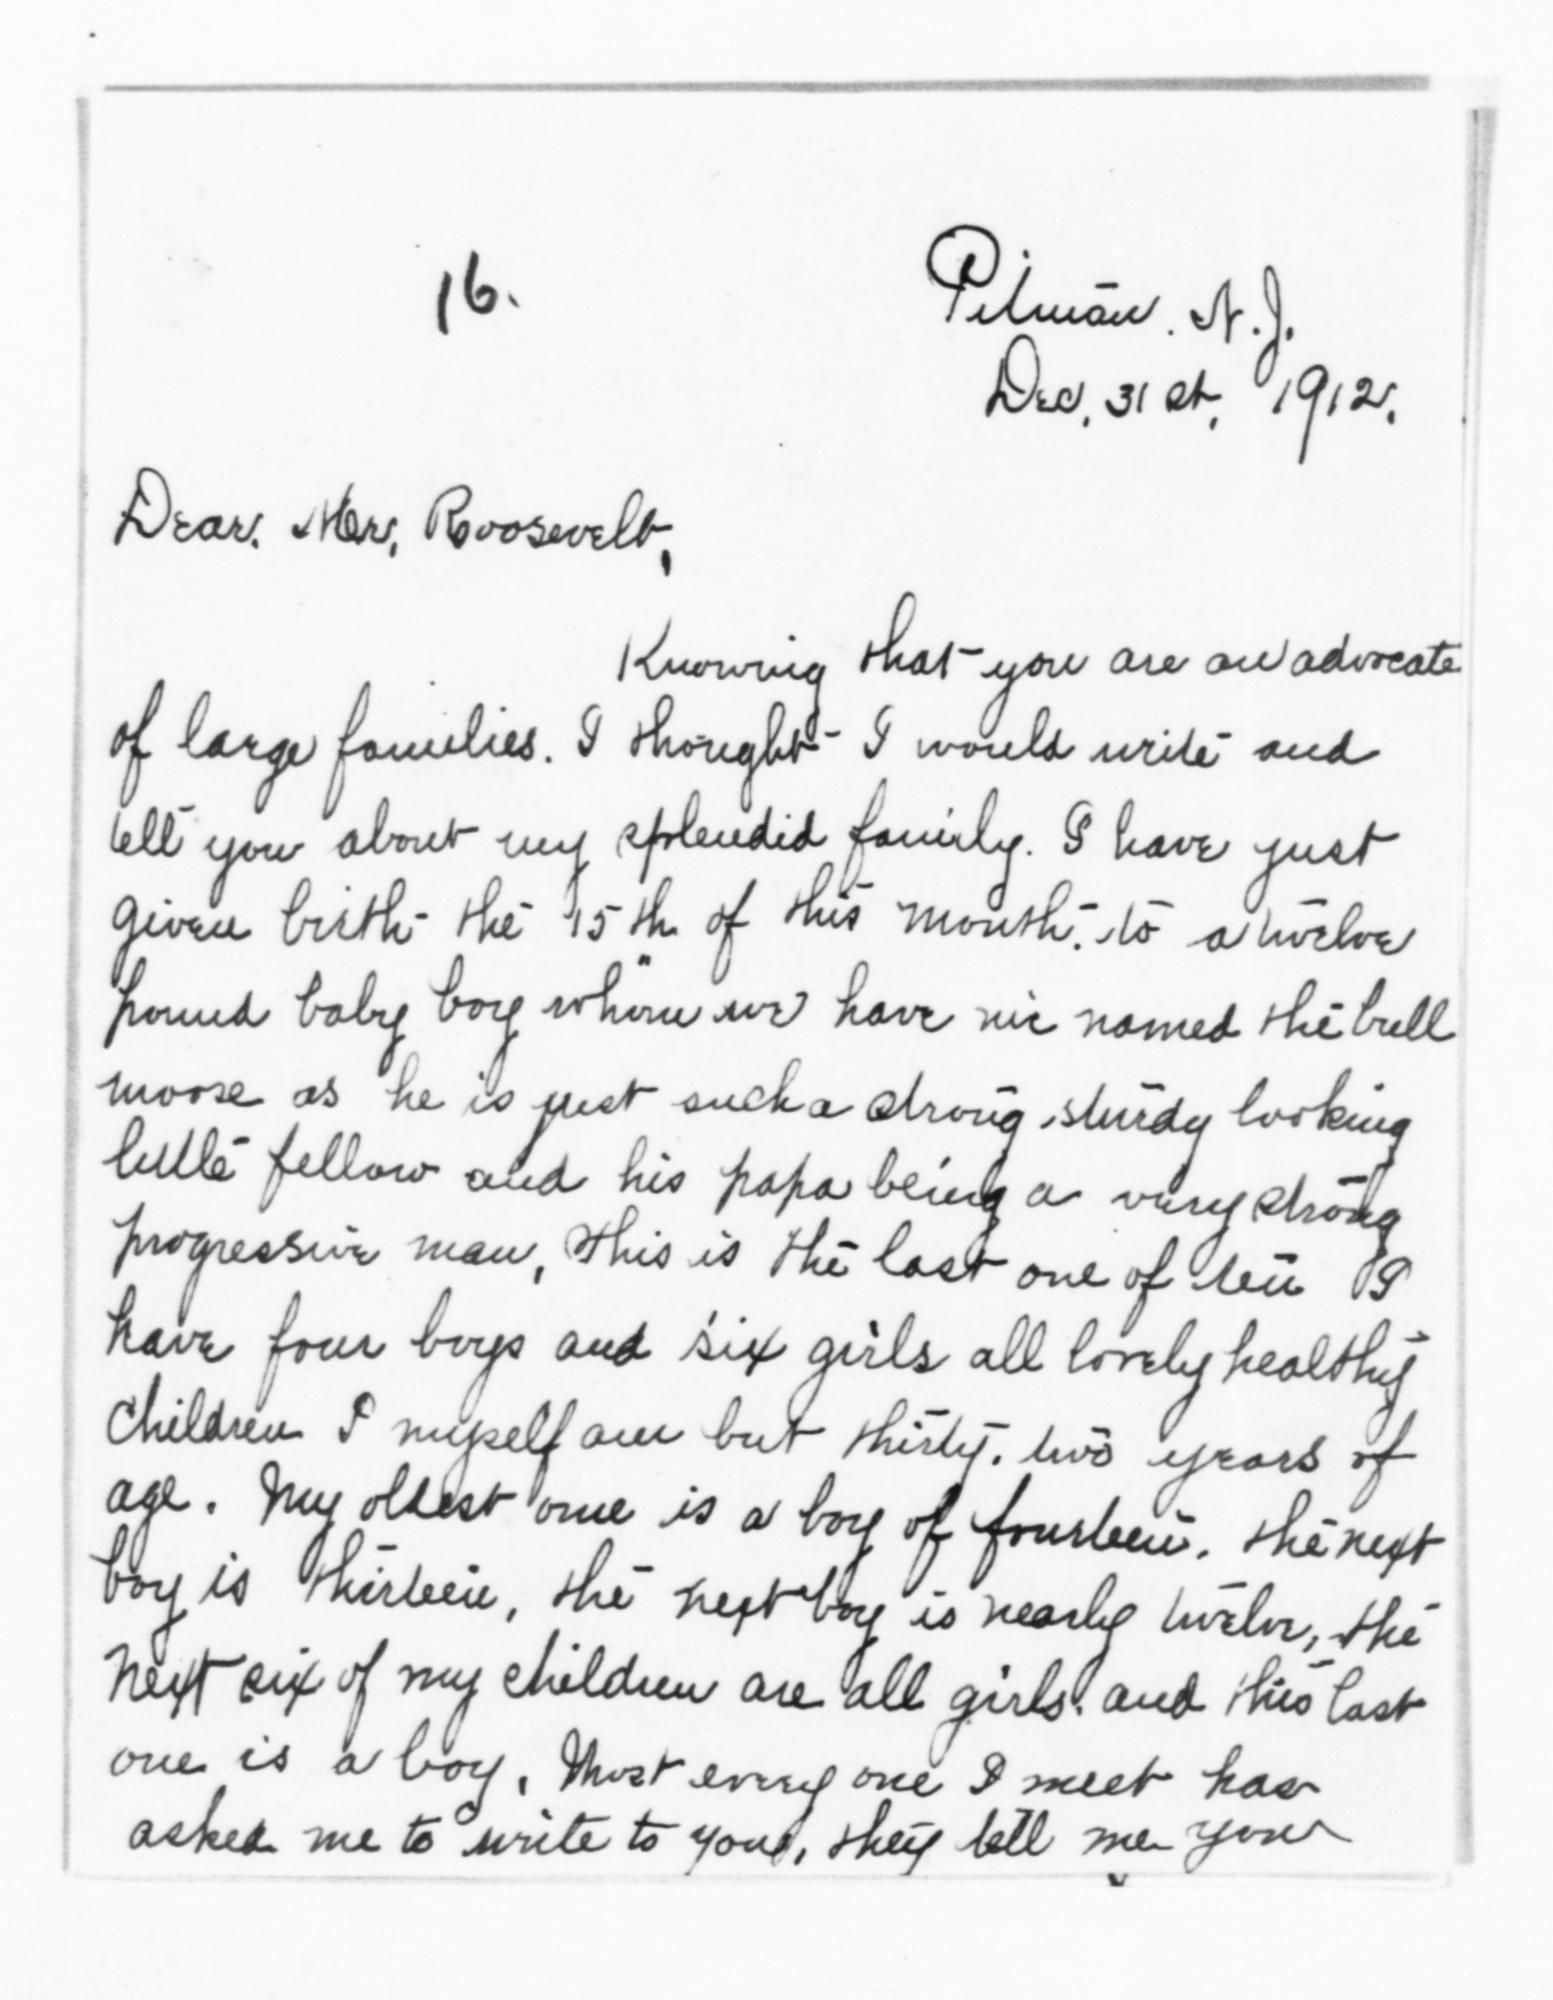 16.
Pitman. N.J.
Dec. 31st, 1912.
Dear. Mr. Roosevelt,
Knowing that you are an advocate
of large families. I thought I would write and
tell you about my splendid family. I have just
given birth the 15th of this month. to a twelve
pound baby boy whom we have nic named the bull
moose as he is just such a strong sturdy looking
little fellow and his papa being a very strong
progressive man, this is the last one of ten I
have four boys and six girls all lovely healthy
children I myself am but thirty. two years of
age. My oldest one is a boy of fourteen. the next
boy is thirteen, the next boy is nearly twelve, the
next six of my children are all girls. and this last
one is a boy. Most every one I meet has
asked me to write to you, they tell me you